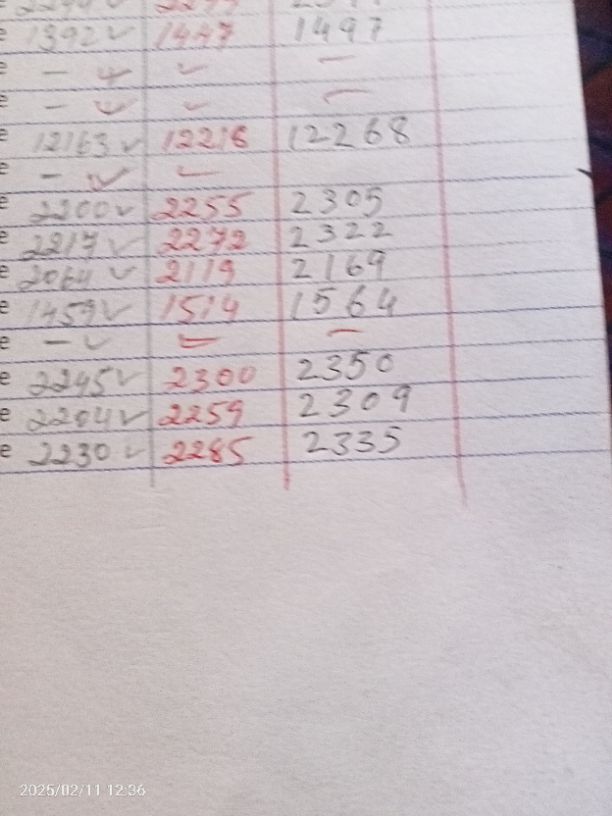 e 1392✓ 1447 1497
e - ✓ ✓ -
e - ✓ ✓ -
e 12163✓ 12216 12268
e - ✓ ✓
e 2200✓ 2255 2305
e 2217✓ 2272 2322
e 2064✓ 2119 2169
e 1459✓ 1514 1564
e - ✓ - -
e 2245✓ 2300 2350
e 2204✓ 2259 2309
e 2230✓ 2285 2335
2025/02/11 12:36